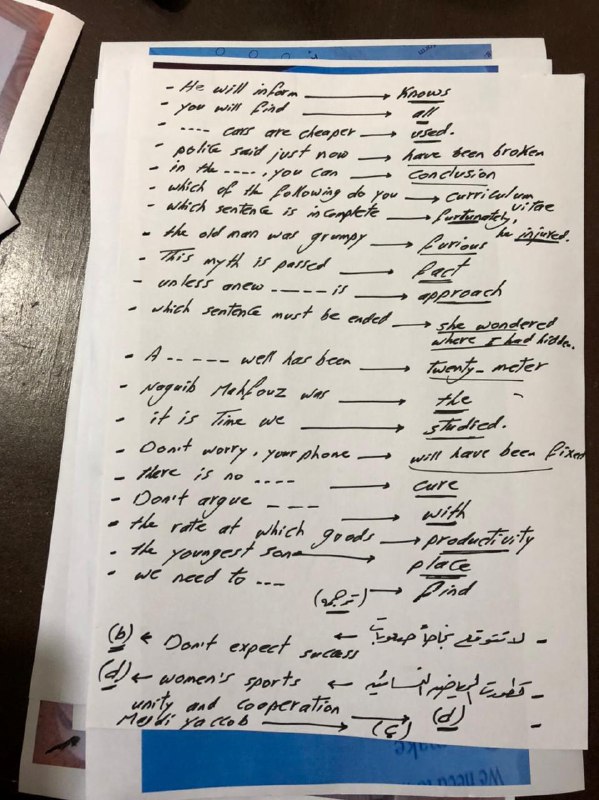 - He will inform → Knows
- you will find → all
- ---- cars are cheaper → used.
- police said just now → have been broken
- in the ----, you can → conclusion
- which of the following do you → curriculum vitae
- which sentence is incomplete → furtunately, he injured.
- the old man was grumpy → furious
- This myth is passed → fact
- unless anew ----- is → approach
- which sentence must be ended → she wondered where I had hidden.
- A ----- well has been → twenty-meter
- Naguib Mahfouz was → the
- it is Time we → studied.
- Don't worry, your phone → will have been fixed
- there is no ---- → cure
- Don't argue --- → with
- the rate at which goods → productivity
- the youngest son → place
- we need to --- → find
(ترجمة)
- لا تتوقع نجاحاً ← Don't expect success ← (b)
- تطورت الرياضة النسائية ← women's sports ← (d)
- unity and cooperation → (d)
Mesdi yaccob → (ج)
We need to
make